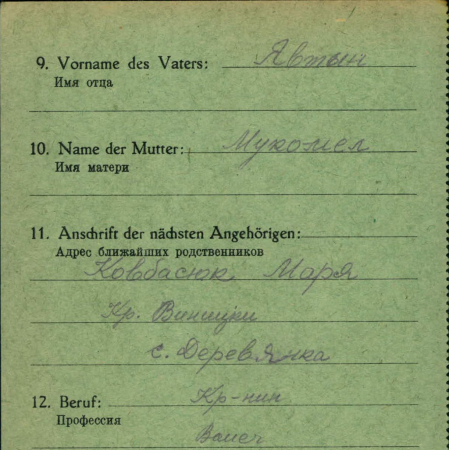 9. Vorname des Vaters: Явтын
Имя отца
10. Name der Mutter: Мукомел
Имя матери
11. Anschrift der nächsten Angehörigen:
Адрес ближайших родственников
Ковбасюк Маря
Кр. Виницки
с. Деревянка
12. Beruf: Кр-нин
Профессия
Bauer